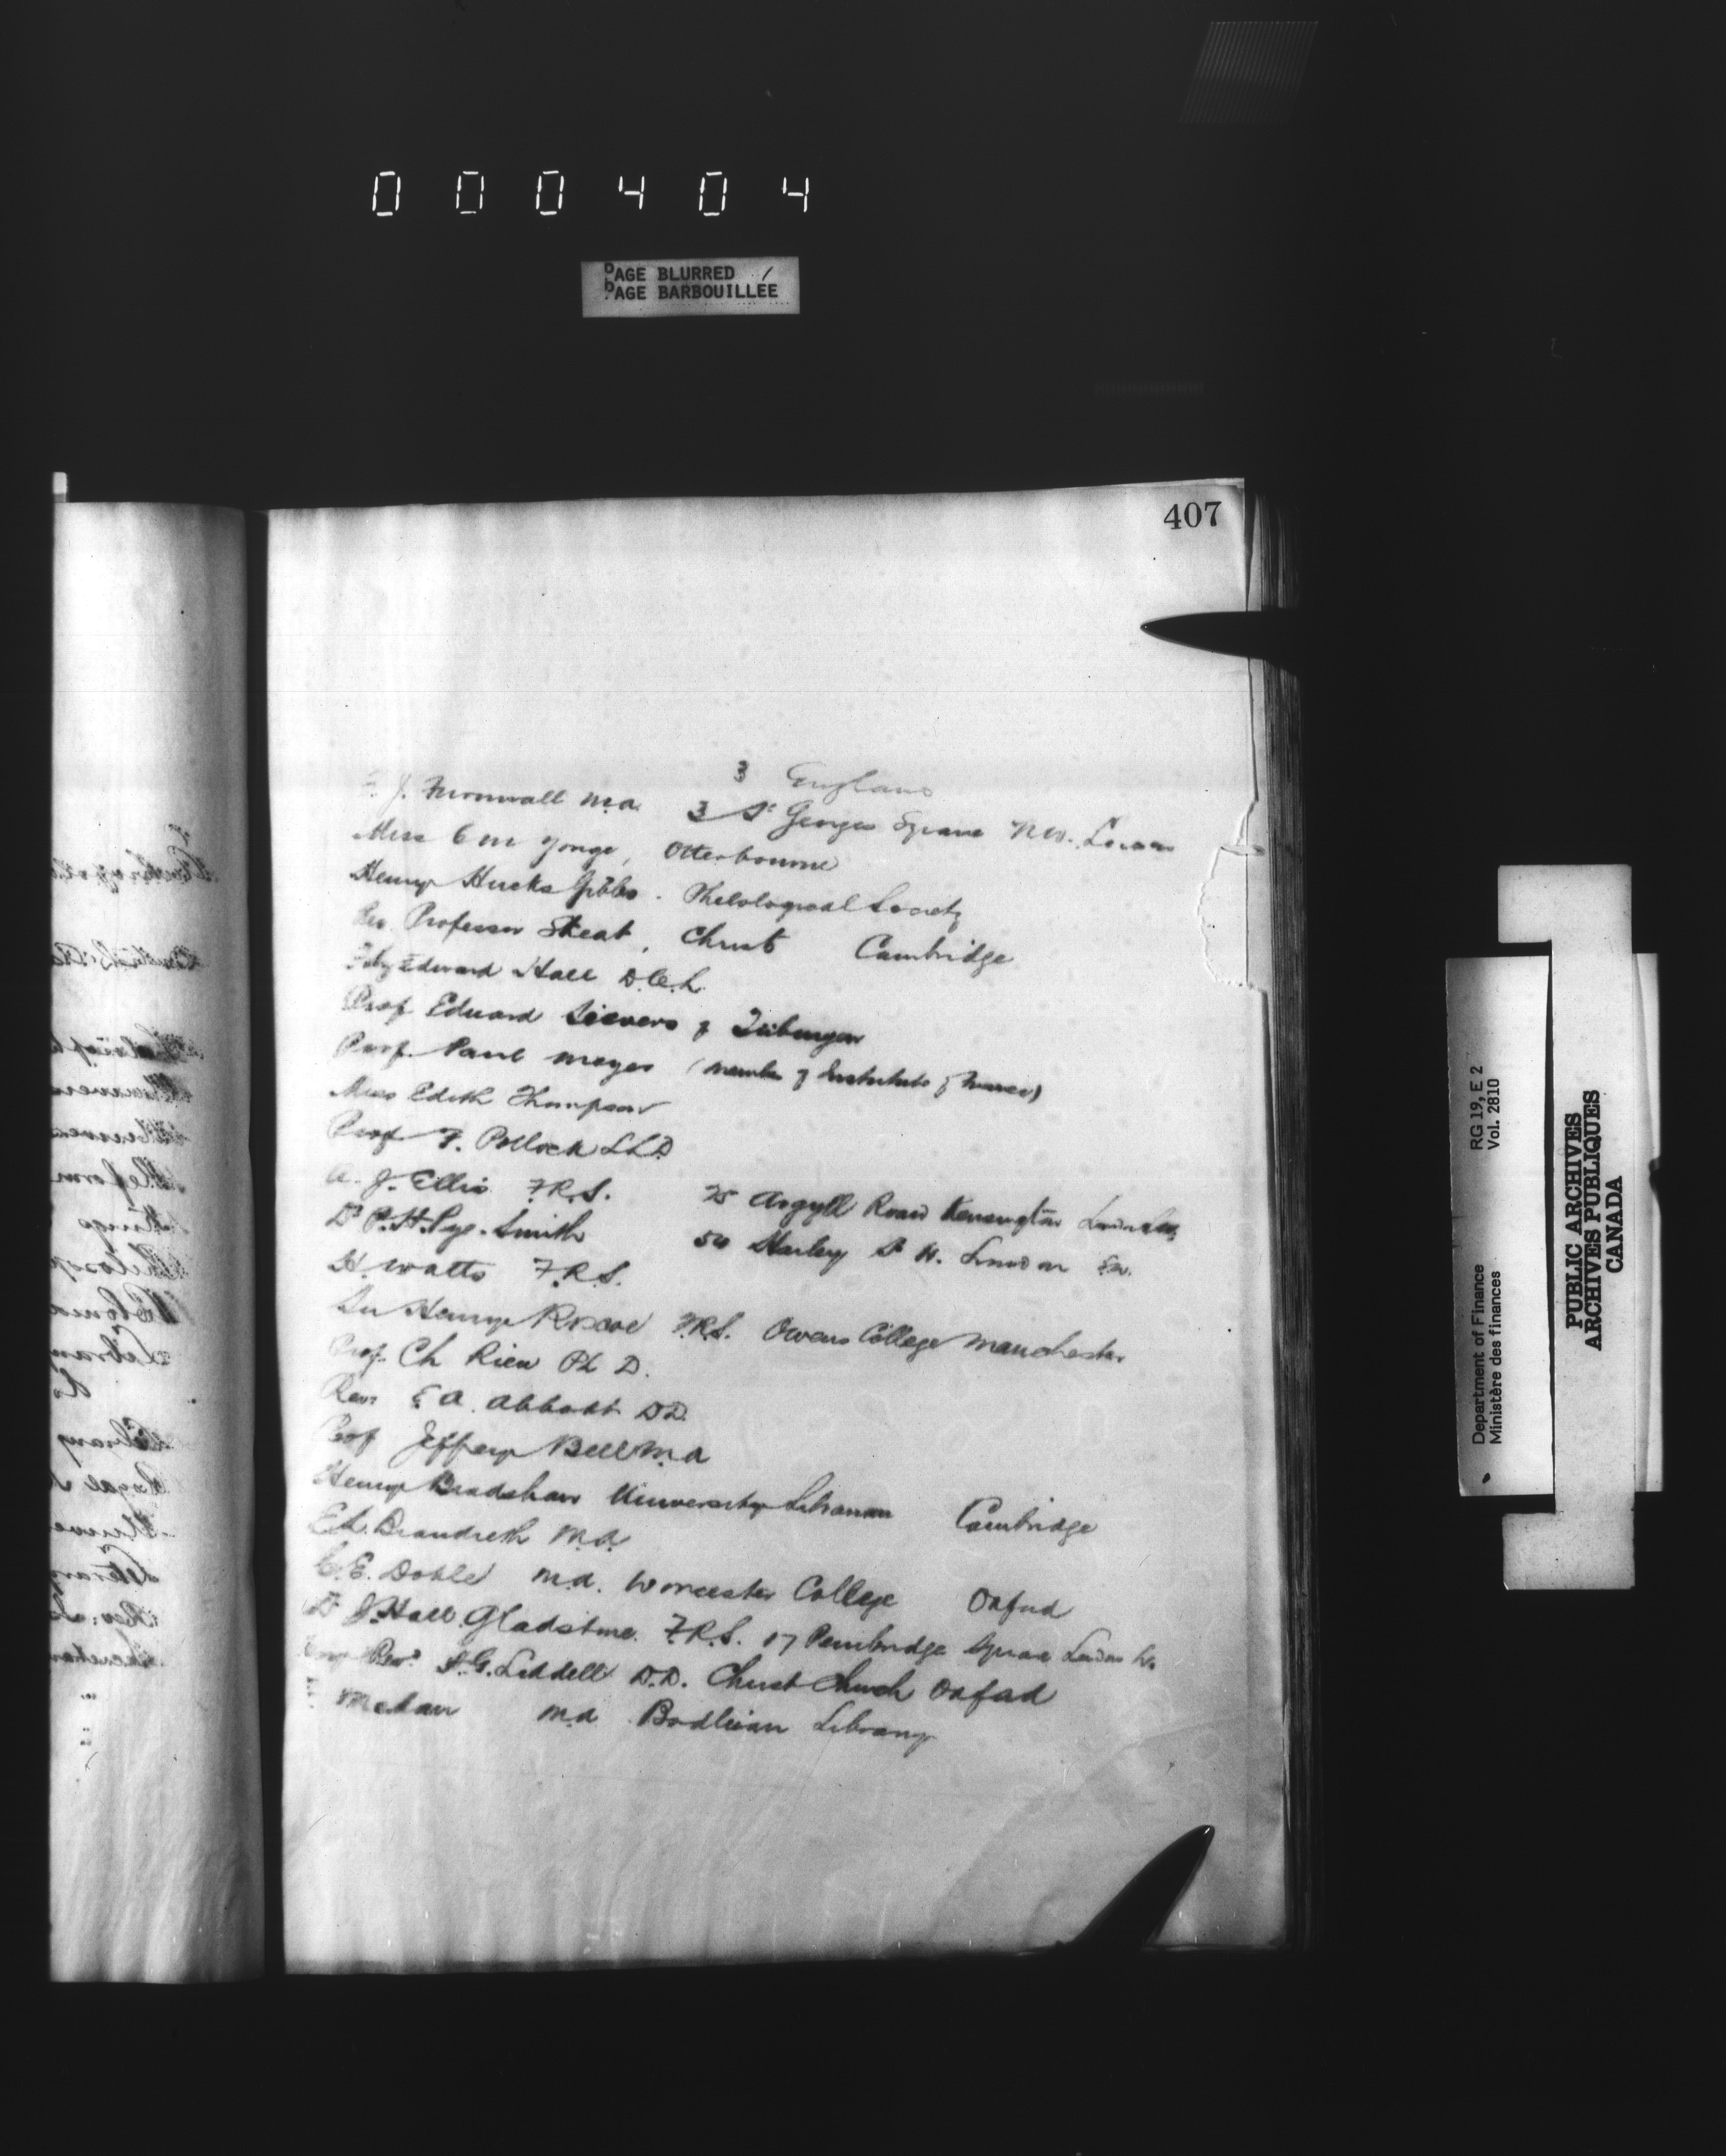 000404
PAGE BLURRED
PAGE BARBOUILLÉE
407
3 England
F. J. Furnivall M.A. 3 St Georges Square N.W. London
Miss C M Yonge, Otterbourne
Henry Hucks Gibbs. Philological Society
Rev Professor Skeat, Christ Cambridge
Fitz Edward Hall D.C.L.
Prof Eduard Sievers of Tübingen
Prof. Paul Meyer (member of Institute of France)
Miss Edith Thompson
Prof F. Pollock LL.D.
A. J. Ellis F.R.S. 25 Argyll Road Kensington London
Dr P. H. Pye-Smith 54 Harley St W. London
H. Watts F.R.S.
Sir Henry Roscoe F.R.S. Owens College Manchester
Prof. Ch Rieu Ph D.
Rev. E A. Abbott D.D.
Prof Jeffery Bell M.A
Henry Bradshaw University Librarian Cambridge
E.L. Brandreth M.A.
C. E. Doble M.A. Worcester College Oxford
Dr J. Hall Gladstone. F.R.S. 17 Pembridge Square London W.
Rev. H. G. Liddell D.D. Christ Church Oxford
Madan M.A Bodleian Library
RG 19, E 2
Vol. 2810
Department of Finance
Ministère des finances
PUBLIC ARCHIVES
ARCHIVES PUBLIQUES
CANADA